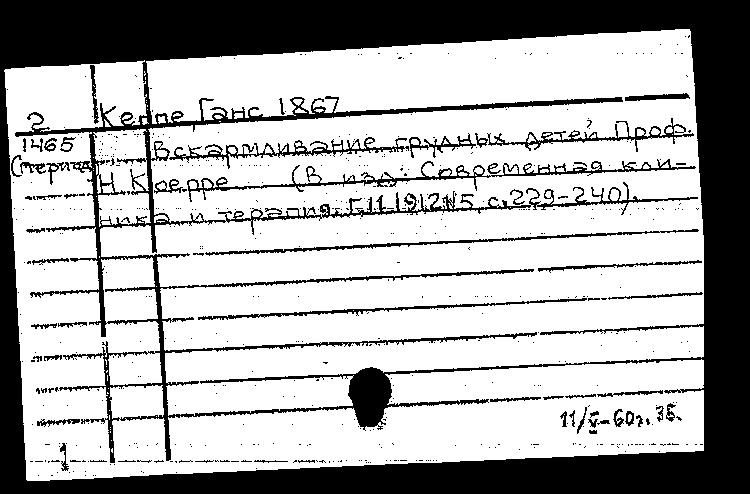 2 Кеппе, Ганс 1867
1465 Вскармливание грудных детей Проф.
(териод) H. Koeppe (В изд: Современная кли-
ника и терапия. Г.II 1912 №5, с. 229-240).
11/V-60г. ЗБ.
1